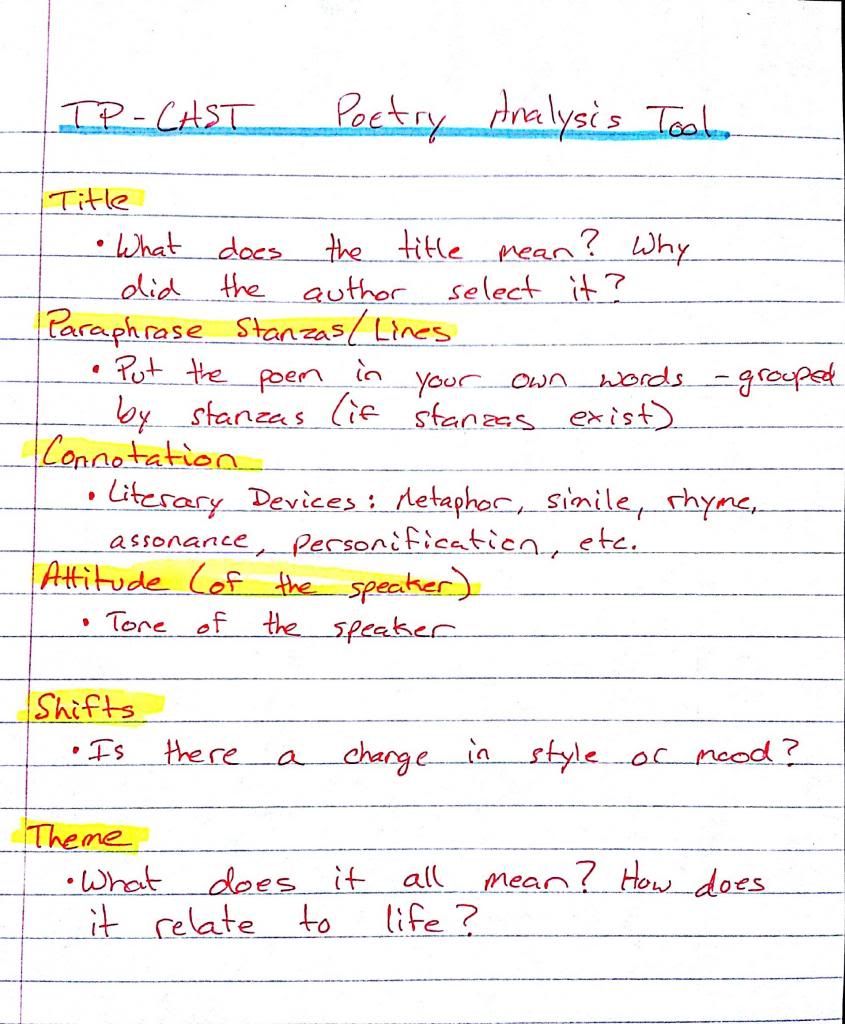 TP-CAST Poetry Analysis Tool
Title
• What does the title mean? Why
did the author select it?
Paraphrase Stanzas/Lines
• Put the poem in your own words - grouped
by stanzas (if stanzas exist)
Connotation
• Literary Devices: Metaphor, simile, rhyme,
assonance, personification, etc.
Attitude (of the speaker)
• Tone of the speaker
Shifts
• Is there a change in style or mood?
Theme
• What does it all mean? How does
it relate to life?